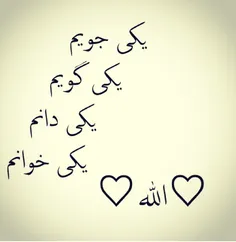 یکی جویم
یکی گویم
یکی دانم
یکی خوانم
♡ الله ♡